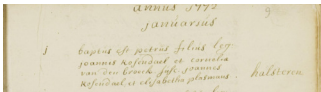 annus 1772
januarius
j baptus est petrus filius leg.
joannis Rosendael et cornelia
van den broeck susc joannes
Rosendael et elisabetha plasmans. halsteren